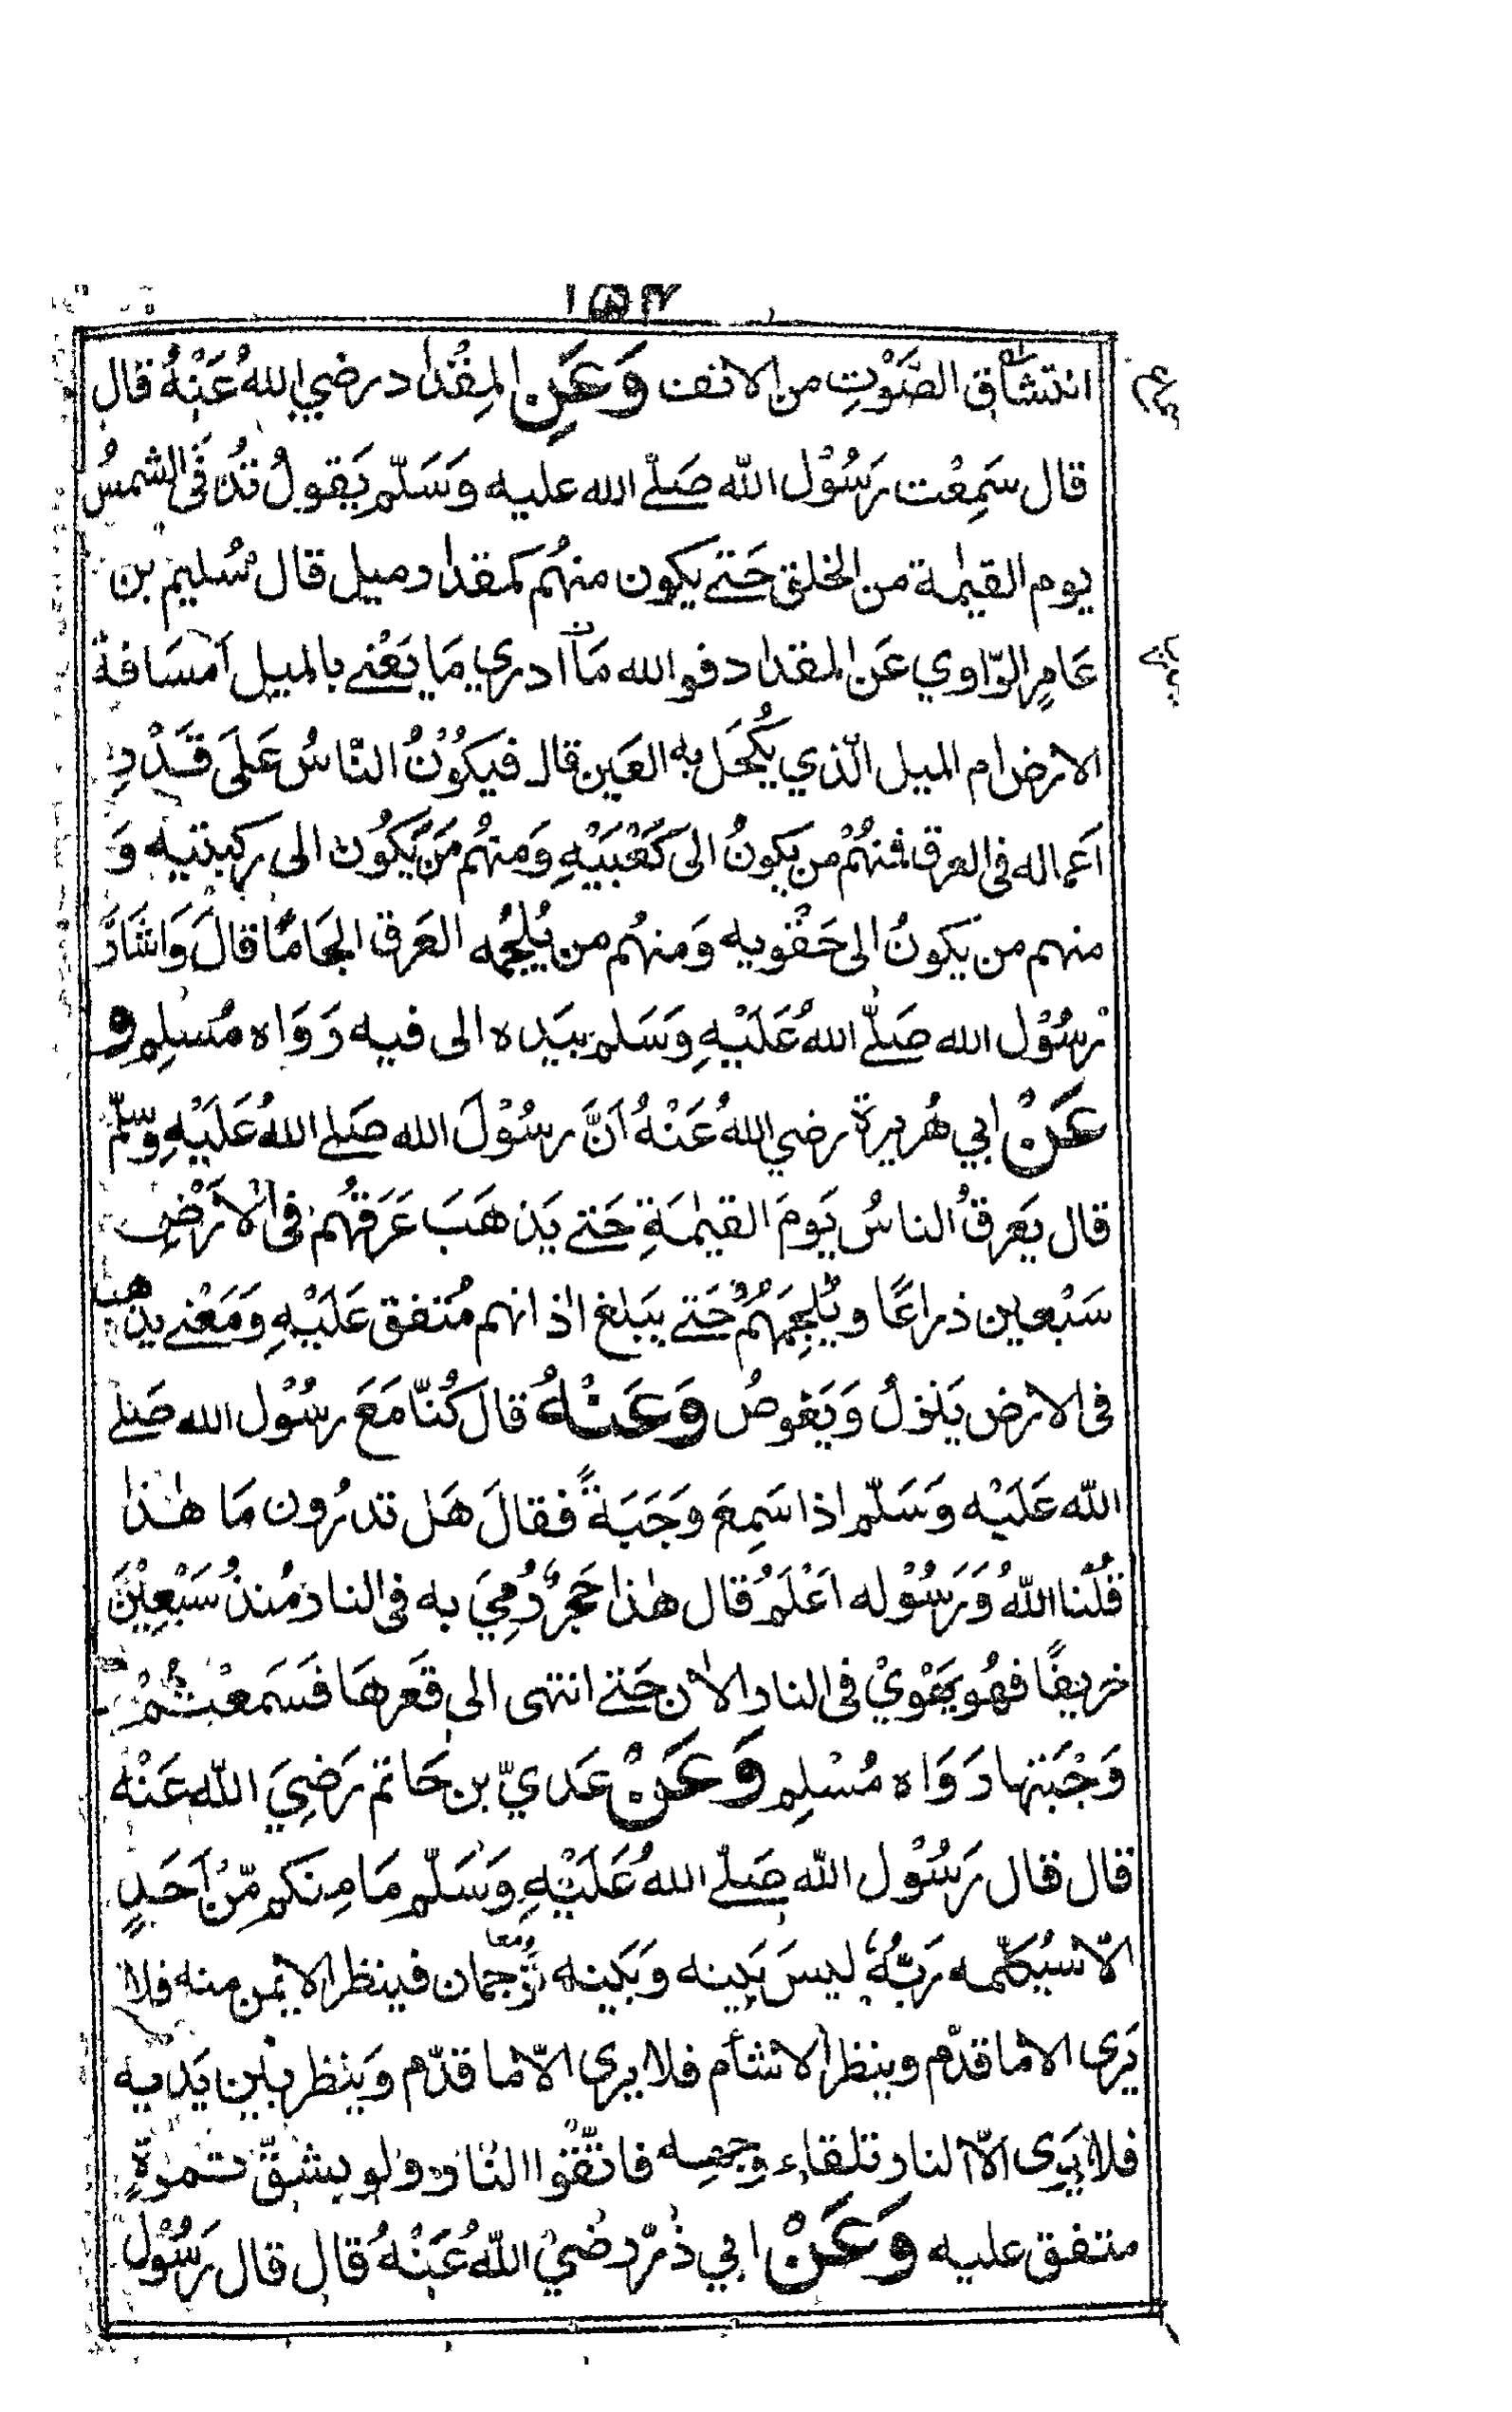 انتشاق الصَّوْتِ من الانف وَعَنِ المِقْدَاد رضي اللهُ عَنْهُ قال
قال سَمِعْت رَسُوْل الله صَلّے الله عليه وَسَلّم يَقولُ تُدْنَى الشمسُ
يوم القيٰمة من الخلق حَتے يكون منهُم كمقدار ميل قال سُليم بن
عَامِرٍ الرّاوي عَن المقداد فوالله مَا ادري مَا يَعْنے بالميل اَمسَافةَ
الارض ام الميل الّذي يُكْحَل به العَين قال فيكُوْنُ النّاسُ عَلَى قَدْرِ
اَعماله فى العرق فمنهُمْ من يكونُ الىٰ كَعْبَيْهِ وَمنهُم مَنْ يَكُون الى ركبتيه وَ
منهم من يَكونُ الى حَقْويه وَمنهُم من يُلْجمُه العَرق الجَامًا قالَ وَاشَارَ
رسُوْل الله صَلّے اللهُ عَلَيْهِ وَسَلم بيَده الى فيه رَوَاه مُسْلِم و
عَنْ ابي هُريرة رضي اللهُ عَنْهُ اَنَّ رسُوْلَ الله صَلے اللهُ عَلَيْهِ وسلّم
قال يَعرقُ الناسُ يَومَ القيٰمَةِ حَتے يَذهَبَ عَرَقهُم فى الاَرْضِ
سَبْعين ذراعًا ويُلْجِمَهُمْ حَتے يبَلغ اٰذانهم مُتفق عَلَيْهِ وَمَعْنے يذهب
فى الارض يَنزلُ وَيَغوصُ وَعَنْهُ قالَ كُنّا مَعَ رسُوْل الله صَلے
الله عَلَيْه وَسَلّم اذا سَمِعَ وَجَبَةً فقالَ هَل تدرُون مَا هٰذا
قُلْنا اللهُ وَرَسُوْله اَعْلَمُ قال هٰذا حَجرٌ رُمِيَ به فى النار مُنذُ سَبْعِيْنَ
خريفًا فهُو يَهْوِيْ فى النار الاٰن حَتے انتهى الى قَعَرهَا فَسَمعْتُمْ
وَجْبَتها رَوَاه مُسْلِم وَعَنْ عَديّ بن حَاتم رَضِيَ الله عَنْهُ
قال قال رَسُوْل الله صَلّے اللهُ عَلَيْهِ وَسَلّم مَا مِنكم مّنْ اَحَدٍ
الّا سَيُكلّمه رَبُّهٗ ليسَ بَينه وَبَينه تَرجمان فينظر الايمن منه فلا
يَرى الا ما قدّم وينظر الاشأم فلا يرى الّا ما قدّم وَينظر بَين يَدَيه
فلا يَرى الّا النار تلقاء وجهه فاتّقُوا النّار ولو بشقّ تمرةٍ
متفق عليه وَعَنْ ابي ذرّ رضيْ اللهُ عَنْهُ قال قال رَسُوْل